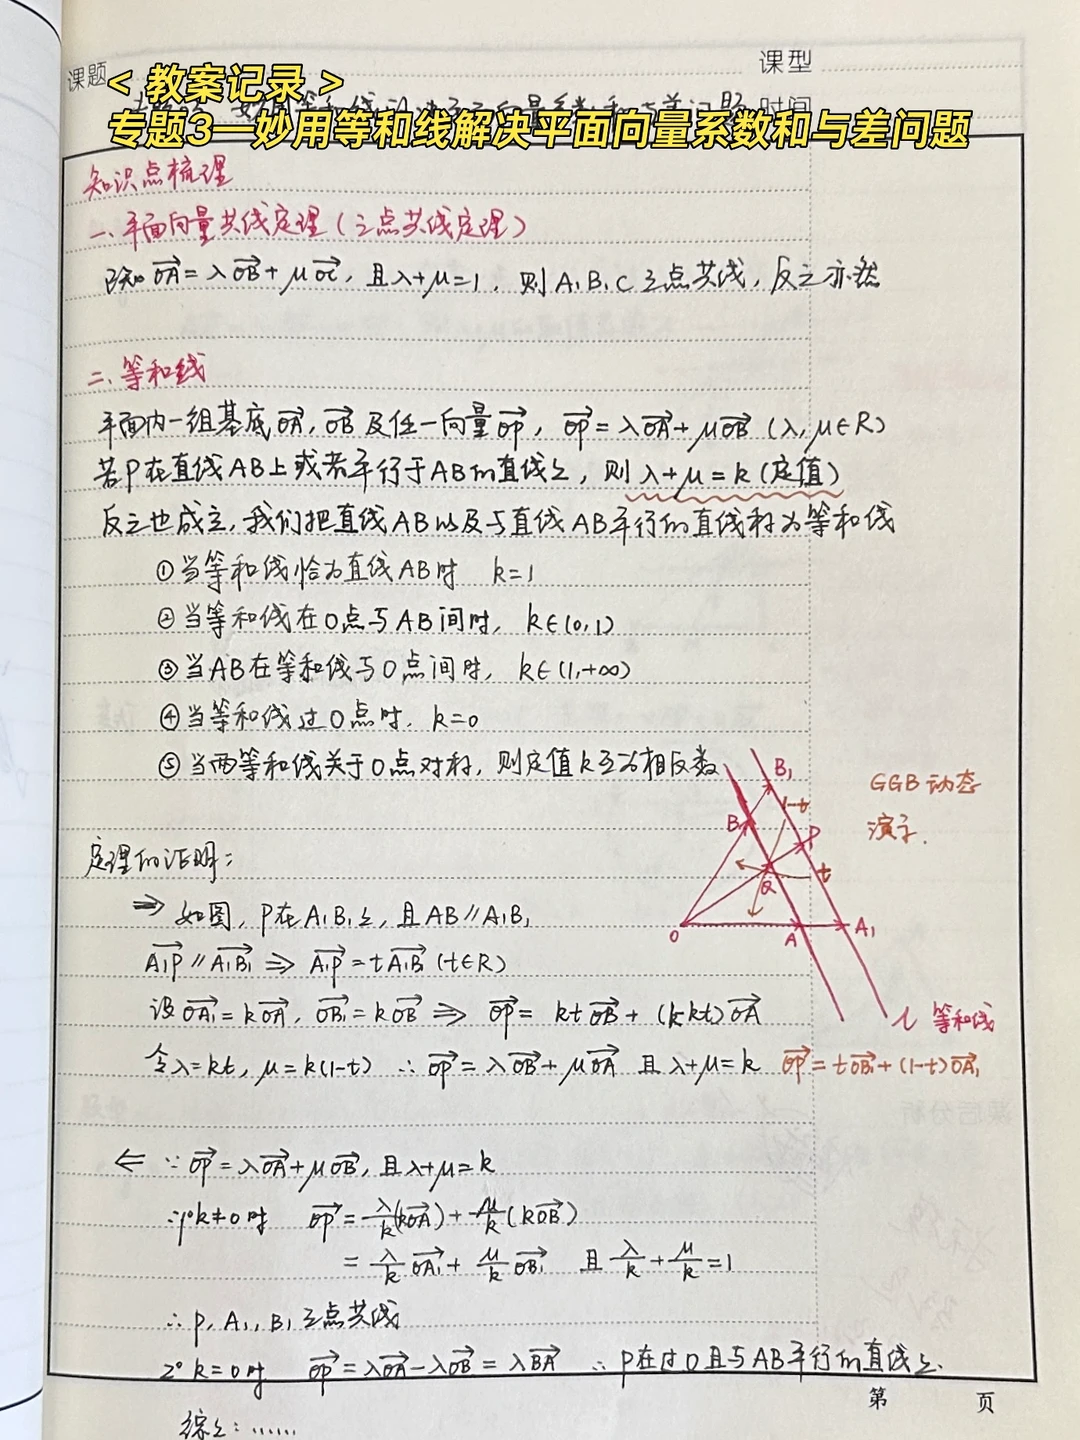 课题
课型
< 教案记录 >
时间
专题3—妙用等和线解决平面向量系数和与差问题
知识点梳理
一、平面向量共线定理(三点共线定理)
已知 OA→ = λOB→ + μOC→, 且λ+μ=1, 则A,B,C三点共线, 反之亦然
二、等和线
平面内一组基底OA→, OB→及任一向量OP→, OP→ = λOA→+μOB→ (λ,μ∈R)
若P在直线AB上或者平行于AB的直线上, 则λ+μ=k(定值)
反之也成立, 我们把直线AB以及与直线AB平行的直线称为等和线
①当等和线恰为直线AB时 k=1
②当等和线在O点与AB间时, k∈(0,1)
③当AB在等和线与O点间时, k∈(1,+∞)
④当等和线过O点时, k=0
⑤当两等和线关于O点对称, 则定值k互为相反数
B₁
1-t
B
P
Q
t
O
A
A₁
l 等和线
GGB动态
演示.
定理的证明:
⇒ 如图, P在A₁B₁上, 且AB∥A₁B₁
A₁P→∥A₁B₁→ ⇒ A₁P→ = tA₁B₁→ (t∈R)
设OA₁→ = kOA→, OB₁→ = kOB→ ⇒ OP→ = ktOB→ + (k-kt)OA→
令λ=kt, μ=k(1-t) ∴ OP→ = λOB→+μOA→ 且λ+μ=k OP→ = tOB₁→+(1-t)OA₁→
⇐ ∵ OP→ = λOA→+μOB→, 且λ+μ=k
∴1° k≠0时 OP→ = λ/k(kOA→) + μ/k(kOB→)
= λ/k OA₁→ + μ/k OB₁→ 且 λ/k + μ/k = 1
∴ P, A₁, B₁三点共线
2° k=0时 OP→ = λOA→-λOB→ = λBA→ ∴ P在过O且与AB平行的直线上.
第 页
综上: ......